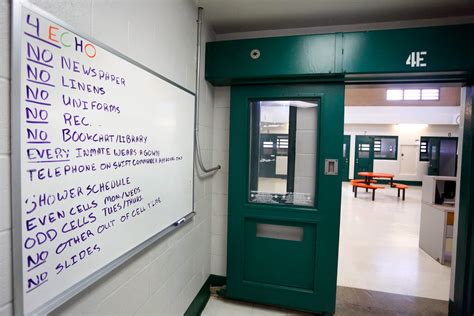 4 ECHO
NO NEWSPAPER
NO LINENS
NO UNIFORMS
NO REC.
NO BOOKCART/LIBRARY
EVERY INMATE WEARS A GOWN
TELEPHONE ON SHIFT COMMANDER APPROVAL ONLY
SHOWER SCHEDULE
EVEN CELLS MON/WEDS.
ODD CELLS TUES/THURS
NO OTHER OUT OF CELL TIME
NO SLIDES
4E